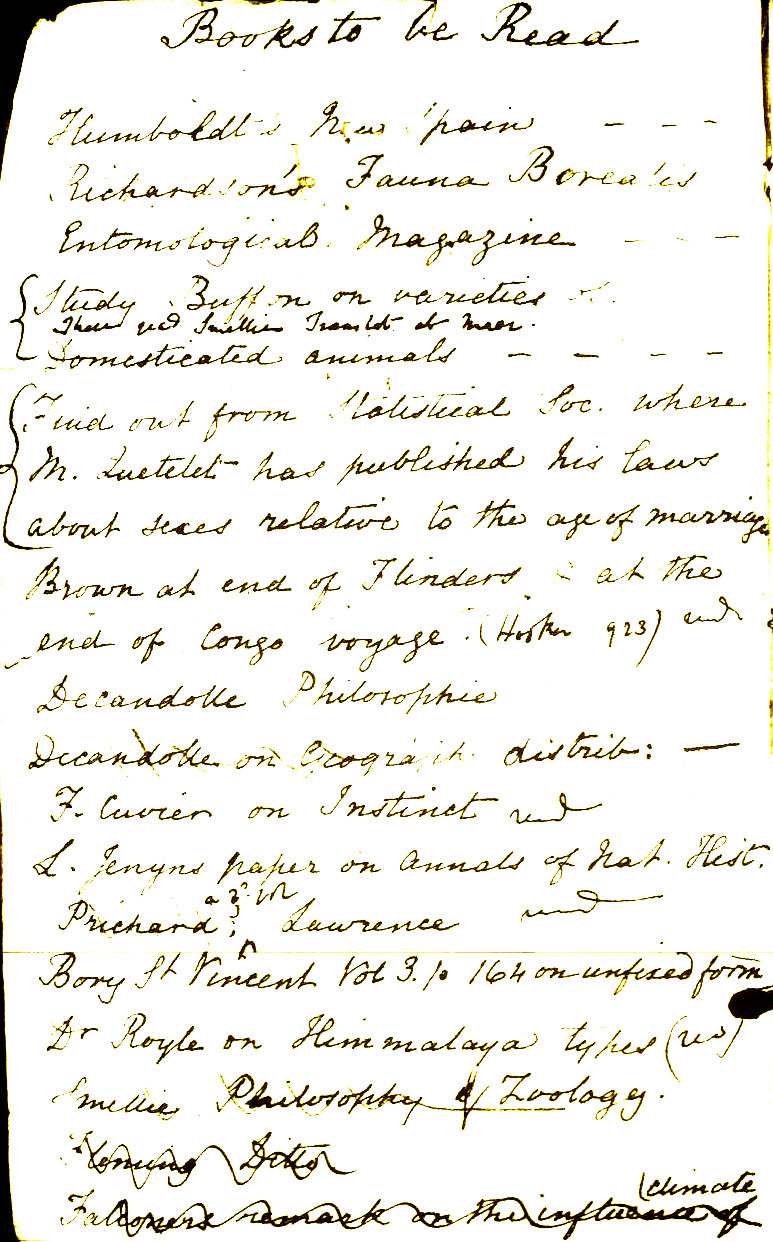 Books to be Read
Humboldt's New Spain - - -
Richardson's Fauna Borealis
Entomological Magazine - - -
Study Buffon on varieties of
Smellie Translat at Maer.
Domesticated animals - - - -
Find out from Statistical Soc. where
M. Quetelet has published his laws
about sexes relative to the age of marriage
Brown at end of Flinders & at the
end of Congo voyage. (Hooker 923) read
Decandolle Philosophie
Decandolle on Geograph. distrib: —
F. Cuvier on Instinct read
L. Jenyns paper on Annals of Nat. Hist.
a 3d. vol
Prichard; Lawrence read
Bory St Vincent Vol 3. p 164 on unfixed form
Dr Royle on Himmalaya types (read)
Smellie Philosophy of Zoology.
Fleming Ditto
climate
Falconers remark on the influence of